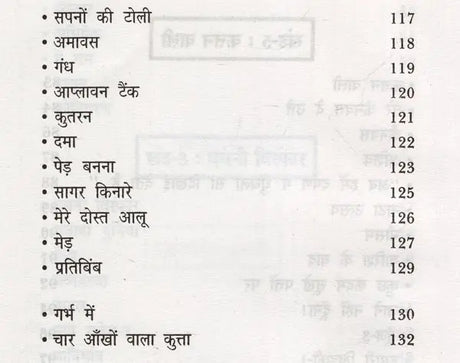 • सपनों की टोली 117
• अमावस 118
• गंध 119
• आप्लावन टैंक 120
• कुतरन 121
• दमा 122
• पेड़ बनना 123
• सागर किनारे 125
• मेरे दोस्त आलू 126
• मेड़ 127
• प्रतिबिंब 129
• गर्भ में 130
• चार आँखों वाला कुत्ता 132